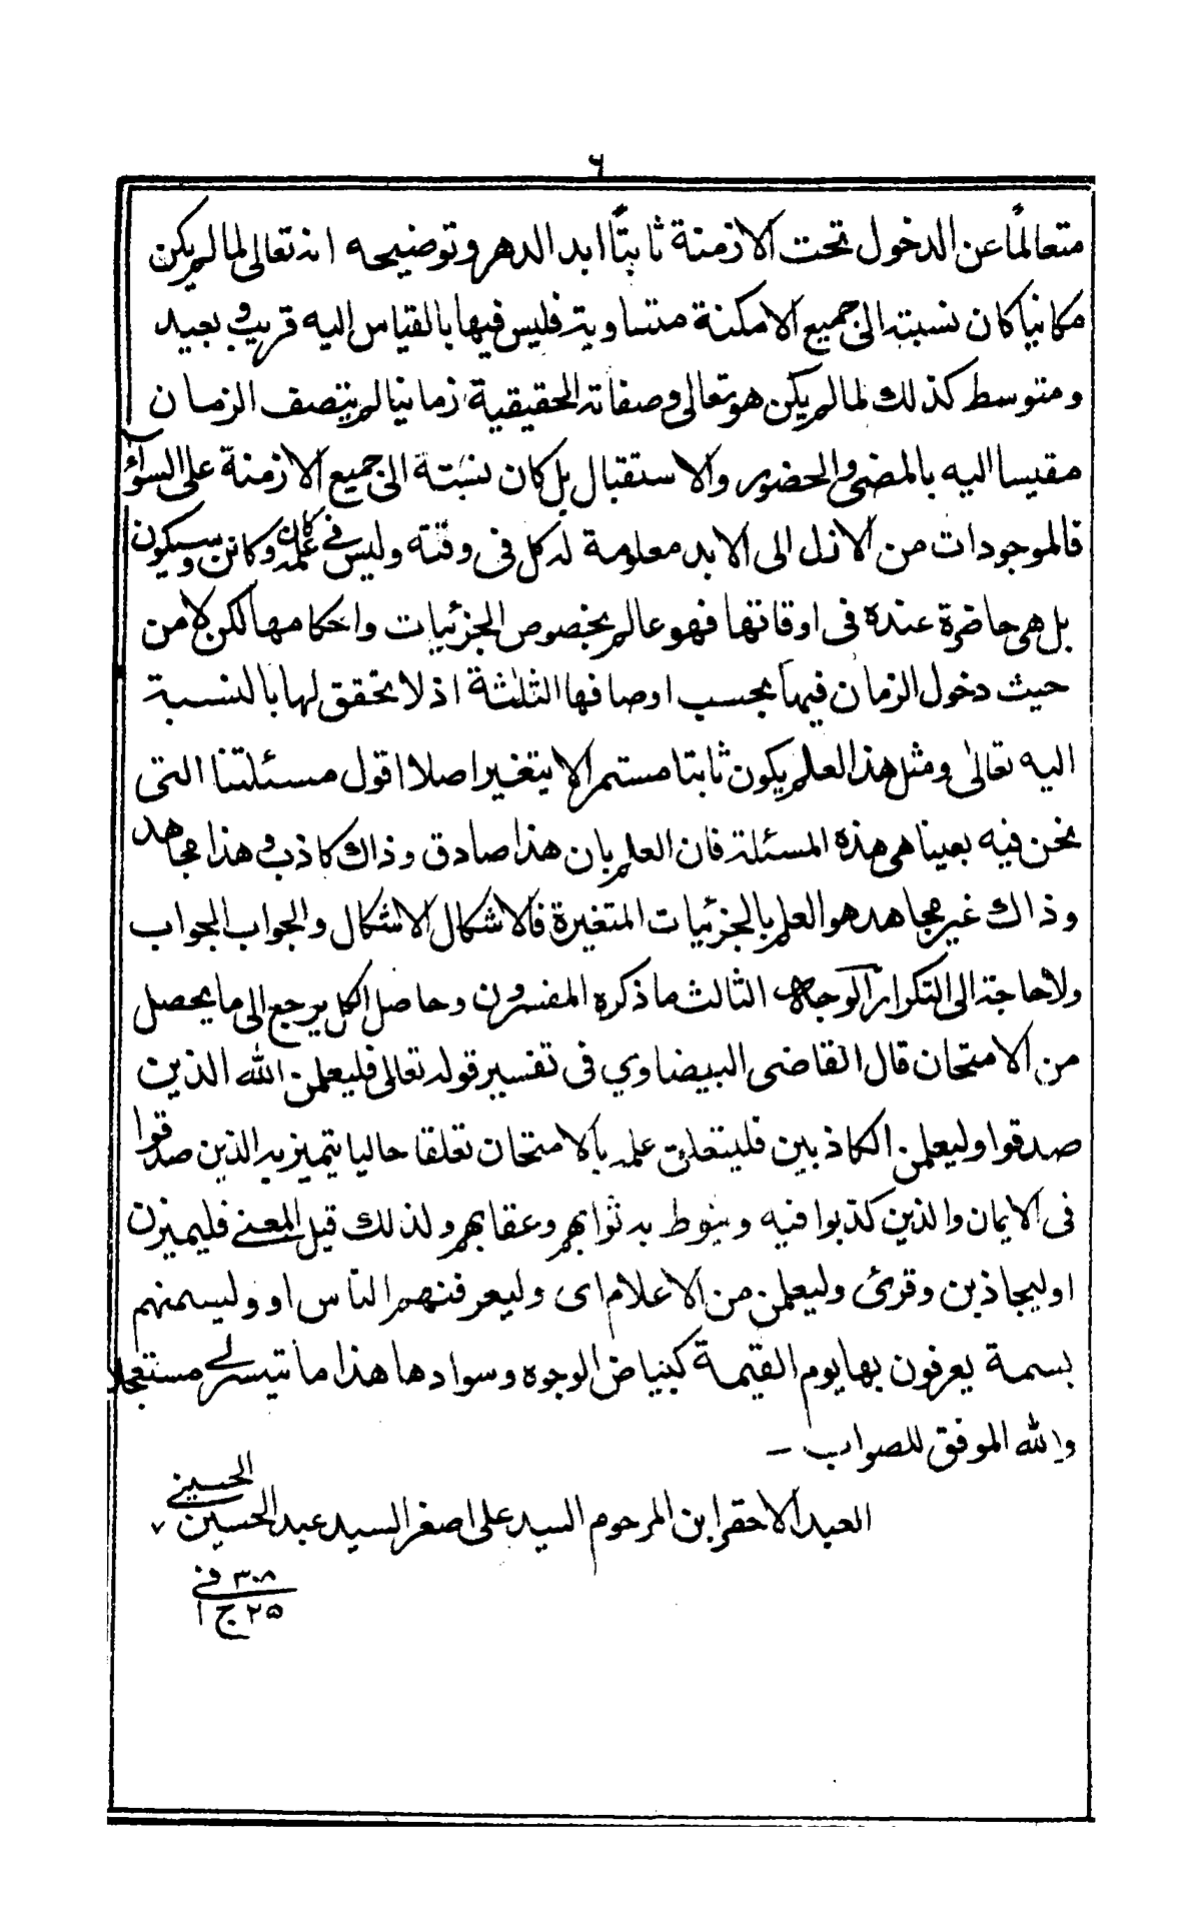 ٦
متعالمًا عن الدخول تحت الازمنة ثابتًا ابد الدهر وتوضيحه انه تعالى لما لم يكن
مكانيا كان نسبته الى جميع الامكنة متساوية فليس فيها بالقياس اليه قريب و بعيد
ومتوسط كذلك لما لم يكن هو تعالى وصفاته الحقيقية زمانيا لم يتصف الزمان
مقيسا اليه بالمضى والحضور والاستقبال بل كان نسبتة الى جميع الازمنة على السوآء
فالموجودات من الازل الى الابد معلومة له كل فى وقته وليس في علمه كان وكائن وسيكون
بل هى حاضرة عنده فى اوقاتها فهو عالم بخصوص الجزئيات واحكامها لكن لا من
حيث دخول الزمان فيها بحسب اوصافها الثلثة اذ لا تحقق لها بالنسبة
اليه تعالىٰ ومثل هذا العلم يكون ثابتا مستمرا لا يتغير اصلا اقول مسئلتنا التى
نحن فيه بعينا هى هذه المسئلة فان العلم بان هذا صادق وذاك كاذب و هذا مجاهد
وذاك غير مجاهد هو العلم بالجزئيات المتغيرة فالاشكال الاشكال والجواب الجواب
ولا حاجة الى التكرار الوجه الثالث ما ذكره المفسرون وحاصل الكل يرجع الى ما يحصل
من الامتحان قال القاضى البيضاوي فى تفسير قوله تعالى فليعلمن الله الذين
صدقوا وليعلمن الكاذبين فليتعلق علمه بالامتحان تعلقا حاليا يتميز به الذين صدقوا
فى الايمان والذين كذبوا فيه وينوط به ثوابهم وعقابهم ولذلك قيل المعنے فليميزن
او ليجاذين وقرئ وليعلمن من الاعلام اى وليعرفنهم الناس او وليسمنهم
بسمة يعرفون بها يوم القيمة كبياض الوجوه وسوادها هذا ما تيسر لے مستعجلا
والله الموفق للصواب ـ
العبد الاحقر ابن المرحوم السيد على اصغر السيد عبد الحسين الحسيني
٣٠٨ في
٢٥ ج ١